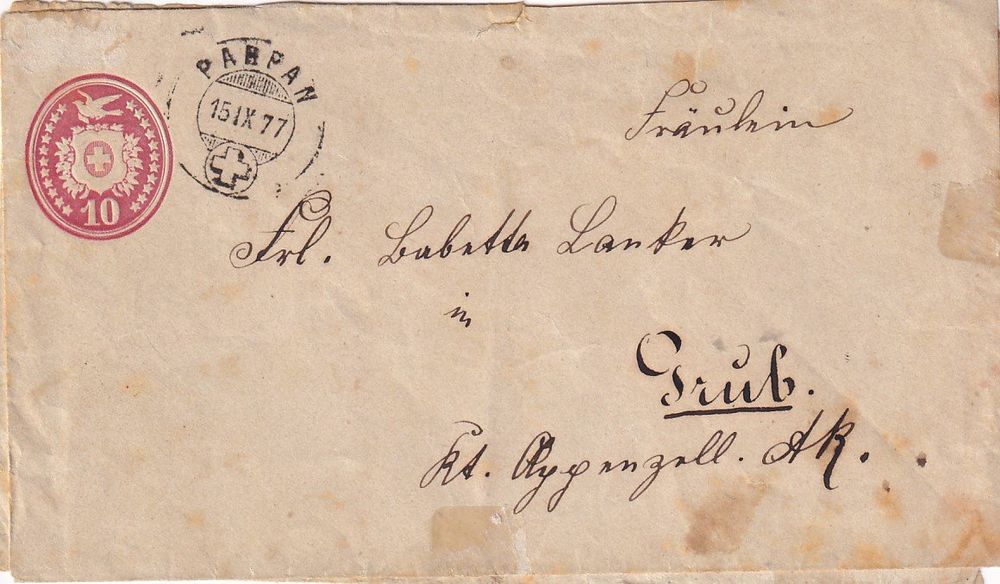 PARPAN
15 IX 77
10
Fräulein
Frl. Babetta Lanker
in
Grub.
Kt. Appenzell. AR.